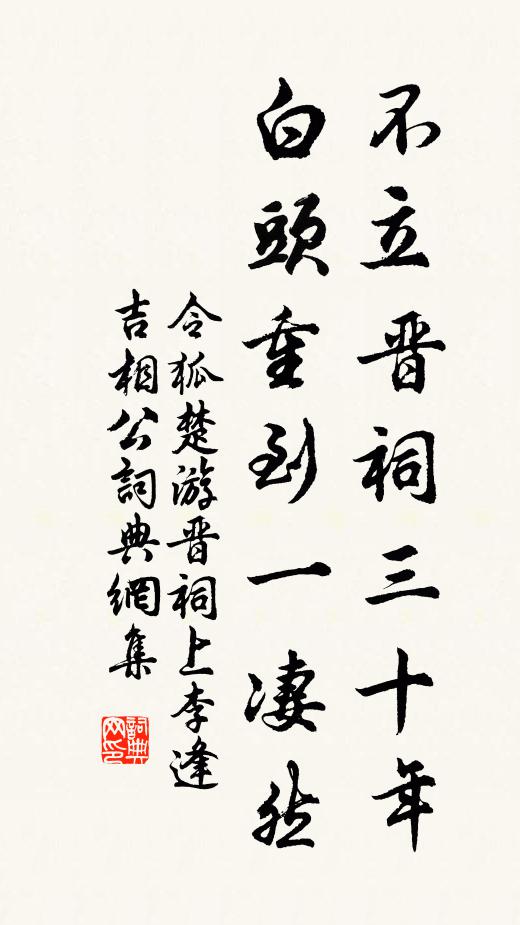 不立晋祠三十年
白頭重到一凄然
令狐楚游晋祠上李逢
吉相公詞典網集
詞典
网印